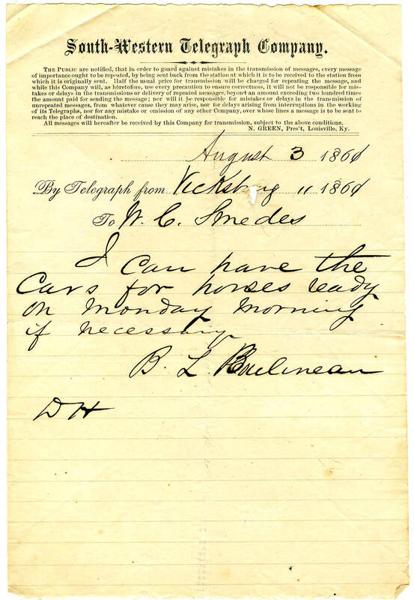 South-Western Telegraph Company.
THE PUBLIC are notified, that in order to guard against mistakes in the transmission of messages, every message
of importance ought to be repeated, by being sent back from the station at which it is to be received to the station from
which it is originally sent. Half the usual price for transmission will be charged for repeating the message, and
while this Company will, as heretofore, use every precaution to ensure correctness, it will not be responsible for mis-
takes or delays in the transmissions or delivery of repeated messages, beyond an amount exceeding two hundred times
the amount paid for sending the message; nor will it be responsible for mistakes or delays in the transmission of
unrepeated messages, from whatever cause they may arise, nor for delays arising from interruptions in the working
of its Telegraphs, nor for any mistake or omission of any other Company, over whose lines a message is to be sent to
reach the place of destination.
All messages will hereafter be received by this Company for transmission, subject to the above conditions.
N. GREEN, Pres't, Louisville, Ky.
August 3 1861
By Telegraph from Vicksburg 11 1861
To W. C. Smedes
I can have the
Cars for horses ready
on Monday Morning
if necessary
B. L.
D H